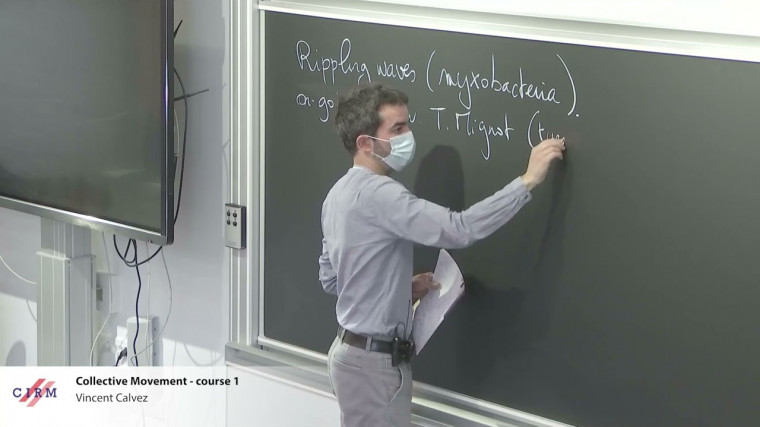 Rippling waves (myxobacteria).
T. Mignot
CIRM
Collective Movement - course 1
Vincent Calvez